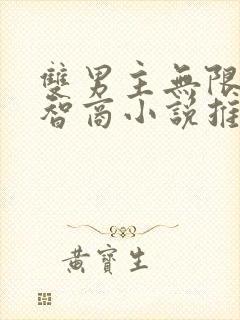 雙男主無限
智商小說推
黃寶生